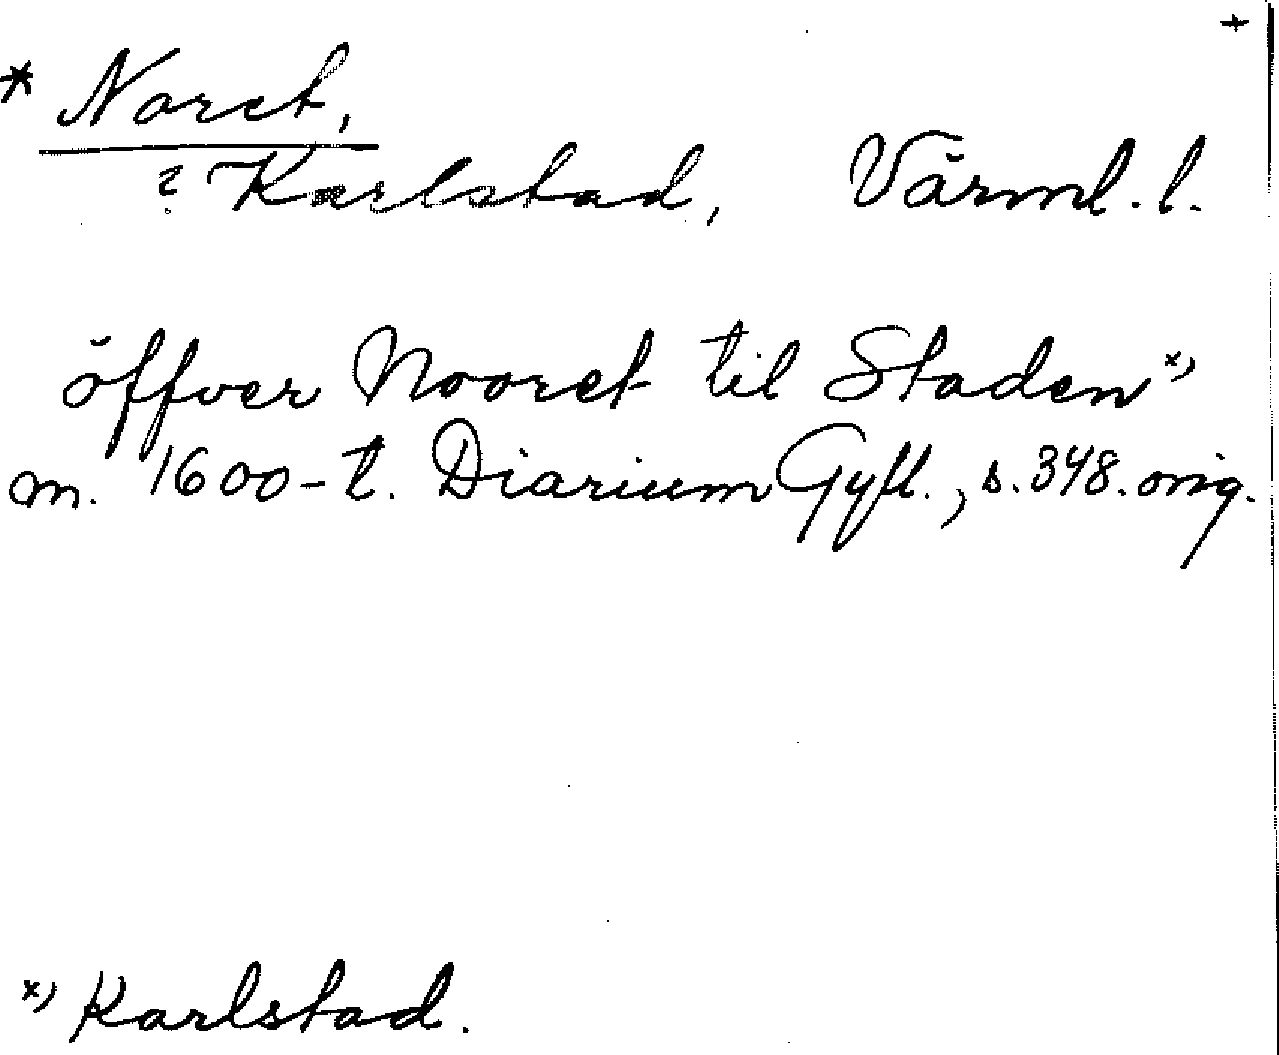 +
* Noret,
? Karlstad, Värml. l.
öffver Nooret til Staden x)
m. 1600-t. Diarium Gyll., s. 348. orig.
x) Karlstad.